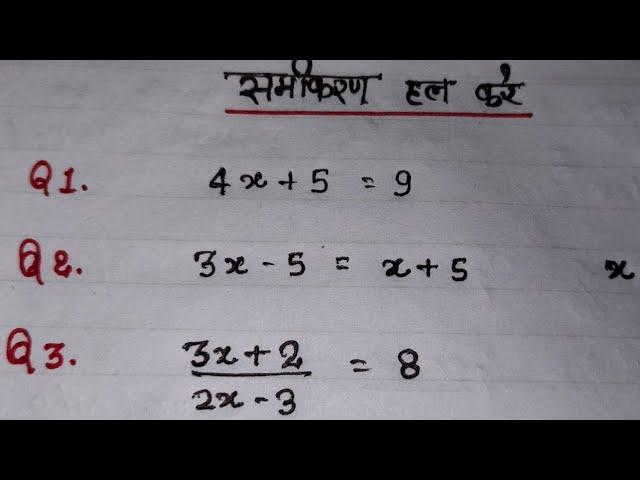 समीकरण हल करे
Q1. 4x + 5 = 9
Q2. 3x - 5 = x + 5 x
Q3. 3x + 2 / 2x - 3 = 8